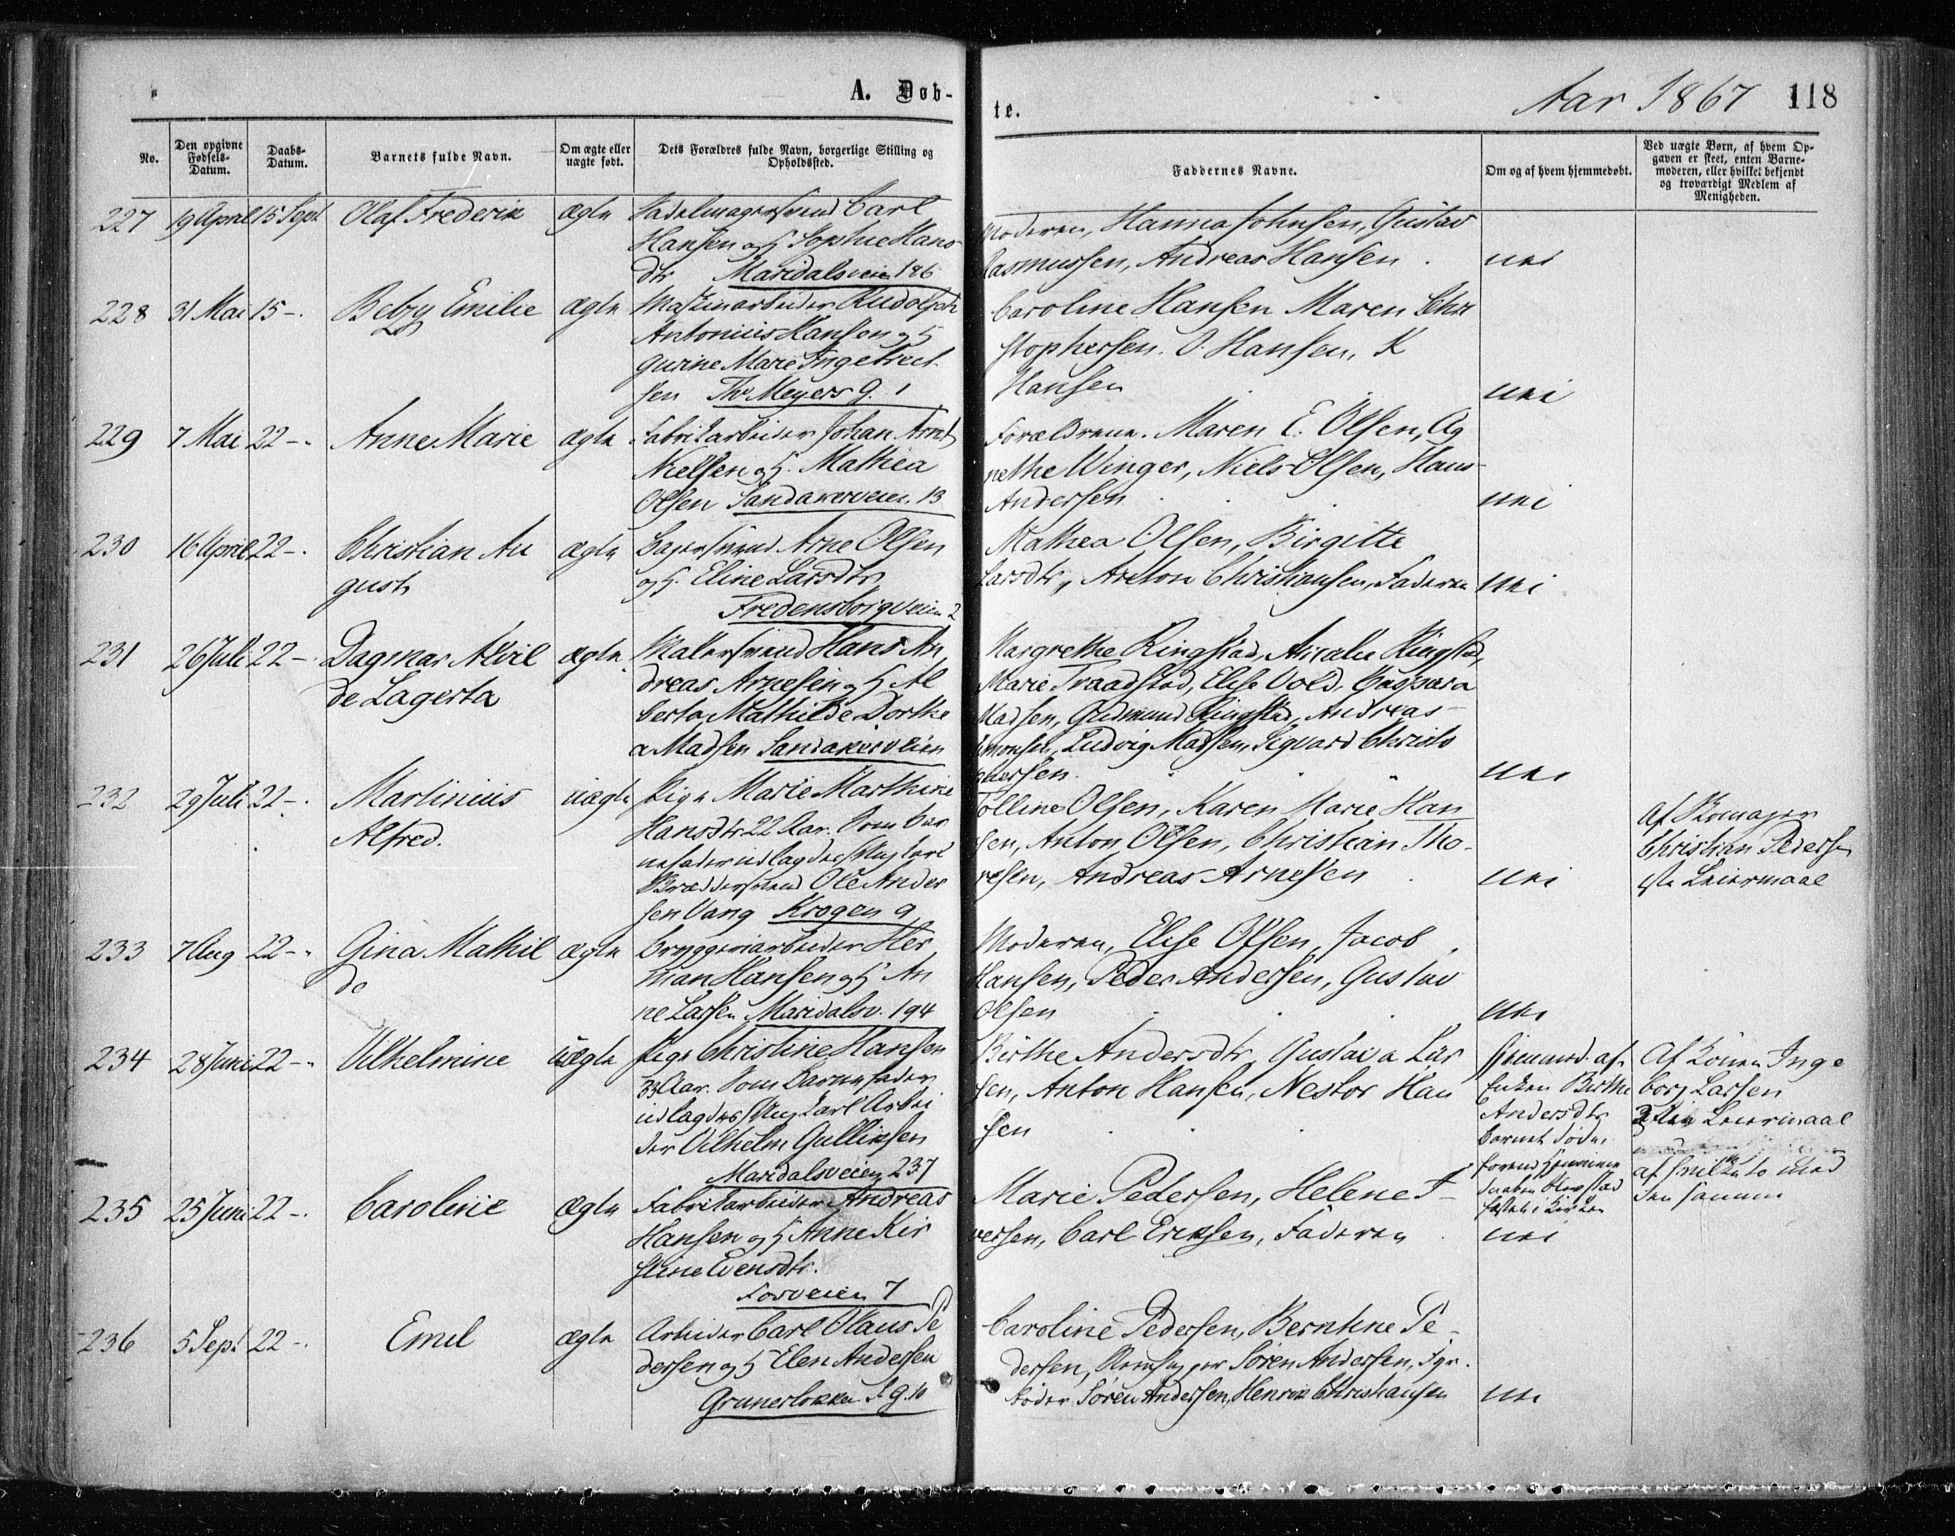 A. Døb-
te.
Aar 1867 118
No.
Den opgivne Fødsels-Datum.
Daabs-Datum.
Barnets fulde Navn.
Om ægte eller uægte født.
Dets Forældres fulde Navn, borgerlige Stilling og Opholdssted.
Faddernes Navne.
Om og af hvem hjemmedøbt.
Ved uægte Børn, af hvem Op-
gaven er skeet, enten Barne-
moderen, eller hvilket bekjendt
og troværdigt Medlem af
Menigheden.
227 19 April 15 Sept Olaf Frederik ægte Sadelmagersvend Carl
Hansen og H Sophie Hans-
dtr Maridalsveien 186
Moderen, Hanna Johnsen, Gustav
Rasmussen, Andreas Hansen
nei
228 31 Mai 15 -. Betzy Emilie ægte Maskinarbeider Rudolph
Antonius Hansen og H
Gurine Marie Ingebret-
sen Th Meyers G. 1
Caroline Hansen Maren Chri
stophersen. O. Hansen, K
Hansen
nei
229 7 Mai 22 -. Anne Marie ægte Fabrikarbeider Johan Arnt
Nielsen og H. Mathea
Olsen Sandakerveien 13
Forældrene. Maren E. Olsen, Ag
nethe Winger, Niels Olsen, Hans
Andersen
nei
230 16 April 22 -. Christian Au
gust
ægte Bagersvend Arne Olsen
og H. Eline Larsdtr
Fredensborgveien 2
Mathea Olsen, Birgitte
Larsdtr, Anton Christiansen, Faderen
nei
231 26 Juli 22 -. Dagmar Alvil
de Lagerta
ægte Malersvend Hans An
dreas Arnesen og H Al
berta Mathilde Dorthe
a Madsen Sandakerveien
Margrethe Ringstad, Amalie Ringstad,
Marie Traadstad, Elise Vold, Caspara
Madsen, Gudmund Ringstad, Andreas
Simonsen, Ludvig Madsen, Sigvard Christo
phersen
nei
232 29 Juli 22 -. Martinius
Alfred.
uægte Pige Marie Marthine
Hansdtr 22 Aar. Som Bar
nefader udlagdes Ungkarl
Ole Ander
sen Vang Krogen 9
Olline Olsen, Karen Marie Han
sen, Anton Olsen, Christian Tho-
resen, Andreas Arnesen
nei
Af Skomager
Christian Pedersen
1ste Leiermaal
233 7 Aug 22 -. Gina Mathil
de
ægte Bryggeriarbeider Her
man Hansen og H An
ne Larsen Maridalsv. 194
Moderen, Elise Olsen, Jacob
Hansen, Peder Andersen, Gustav
Olsen
nei
234 28 Juni 22 -. Vilhelmine uægte Pige Christine Hansen
Aar. Som Barnefader
udlagdes Ung Karl Arbei
der Vilhelm Gulliksen
Maridalsveien 237
Birthe Andersdtr, Gustava Lar
sen, Anton Hansen, Nestor Han
sen
Hjemmed. af
Enken Birthe
Andersdtr
Af Konen Inge
borg Larsen
Leiermaal
235 25 Juni 22 -. Caroline ægte Fabrikarbeider Andreas
Hansen og H Anne Kir
stine Evensdtr.
Fosveien 7
Marie Pedersen, Helene I-
versen, Carl Eriksen, Faderen
nei
236 5 Sept 22 -. Emil ægte Arbeider Carl Olaus Pe
dersen og H Elen Andersen
Grunerløkken
Caroline Pedersen, Bernthine Pe-
dersen, Søren Andersen,
Søren Andersen, Henrik Christiansen
nei